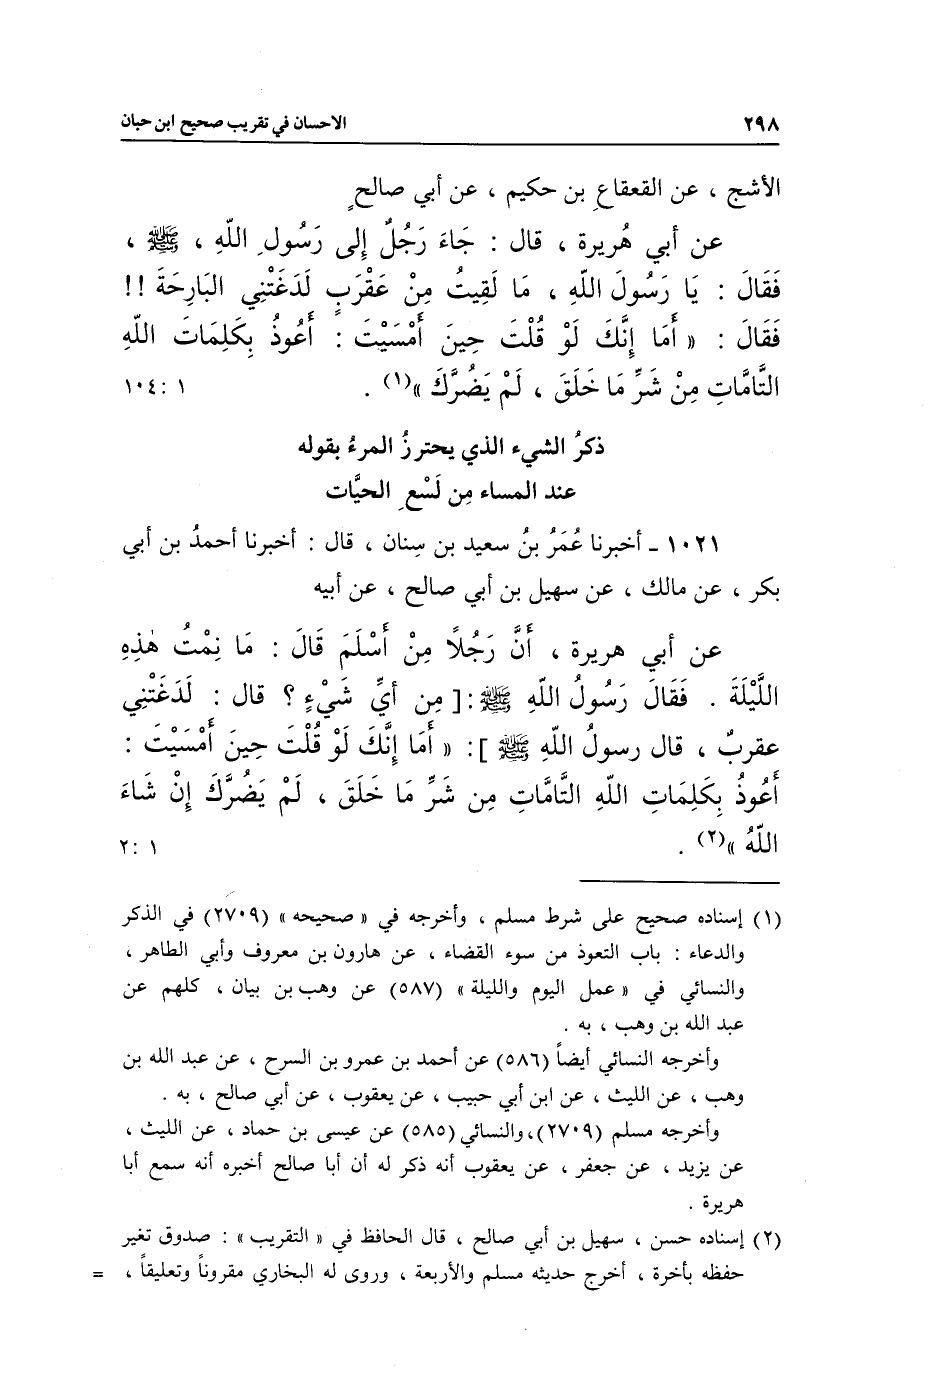 ٢٩٨ الاحسان في تقريب صحيح ابن حبان
الأشج ، عن القعقاعِ بن حكيم ، عن أبي صالحٍ
عن أبي هُريرة ، قال : جَاءَ رَجُلٌ إلى رَسُولِ اللّهِ ، ﷺ ،
فَقَالَ : يَا رَسُولَ اللّهِ ، مَا لَقِيتُ مِنْ عَقْرَبٍ لَدَغَتْنِي البَارِحَةَ !!
فَقَالَ : « أَمَا إِنَّكَ لَوْ قُلْتَ حِينَ أَمْسَيْتَ : أَعُوذُ بِكَلِمَاتَ اللّهِ
التَّامَّاتِ مِنْ شَرِّ مَا خَلَقَ ، لَمْ يَضُرَّكَ »(١) . ١ :١٠٤
ذكرُ الشيء الذي يحترزُ المرءُ بقوله
عند المساء مِن لَسْعِ الحيَّات
١٠٢١ ـ أخبرنا عُمَرُ بنُ سعيد بن سِنان ، قال : أخبرنا أحمدُ بن أبي
بكر ، عن مالك ، عن سهيل بن أبي صالح ، عن أبيه
عن أبي هريرة ، أَنَّ رَجُلاً مِنْ أَسْلَمَ قَالَ : مَا نِمْتُ هٰذِهِ
اللَّيْلَةَ . فَقَالَ رَسُولُ اللّهِ ﷺ :[ مِن أيِّ شَيْءٍ ؟ قال : لَدَغَتْنِي
عقربٌ ، قال رسولُ اللّهِ ﷺ ]: « أَمَا إِنَّكَ لَوْ قُلْتَ حِينَ أَمْسَيْتَ :
أَعُوذُ بِكَلِمَاتِ اللّهِ التَّامَّاتِ مِن شَرِّ مَا خَلَقَ ، لَمْ يَضُرَّكَ إِنْ شَاءَ
اللّهُ »(٢) . ١ :٢
(١) إسناده صحيح على شرط مسلم ، وأخرجه في « صحيحه » (٢٧٠٩) في الذكر
والدعاء : باب التعوذ من سوء القضاء ، عن هارون بن معروف وأبي الطاهر ،
والنسائي في « عمل اليوم والليلة » (٥٨٧) عن وهب بن بيان ، كلهم عن
عبد الله بن وهب ، به .
وأخرجه النسائي أيضاً (٥٨٦) عن أحمد بن عمرو بن السرح ، عن عبد الله بن
وهب ، عن الليث ، عن ابن أبي حبيب ، عن يعقوب ، عن أبي صالح ، به .
وأخرجه مسلم (٢٧٠٩)، والنسائي (٥٨٥) عن عيسى بن حماد ، عن الليث ،
عن يزيد ، عن جعفر ، عن يعقوب أنه ذكر له أن أبا صالح أخبره أنه سمع أبا
هريرة .
(٢) إسناده حسن ، سهيل بن أبي صالح ، قال الحافظ في « التقريب » : صدوق تغير
حفظه بأخرة ، أخرج حديثه مسلم والأربعة ، وروى له البخاري مقروناً وتعليقاً ، =